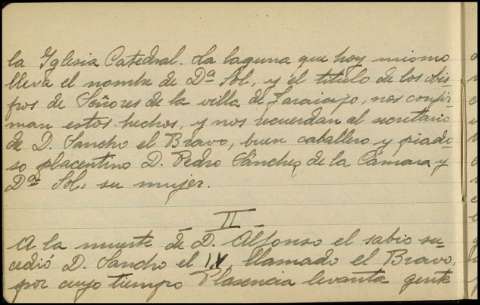 la Yglesia Catedral. La laguna que hoy mismo
lleva el nombre de Dª Sol, y el titulo de los obis-
pos de Señores de la villa de Jaraicejo, nos confir-
man estos hechos, y nos recuerdan al secretario
de D. Sancho el Bravo, buen caballero y piado
so placentino D. Pedro Sánchez de la Cámara y
Dª Sol, su mujer.
II
A la muerte de D. Alfonso el sabio su-
cedió D. Sancho el IV llamado el Bravo,
por cuyo tiempo Plasencia levanta gente